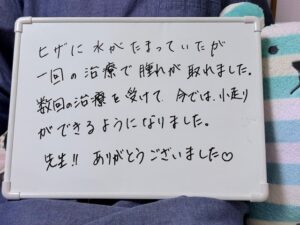 ヒザに水がたまっていたが
一回の治療で腫れが取れました。
数回の治療を受けて、今では、小走り
ができるようになりました。
先生!! ありがとうございました♡